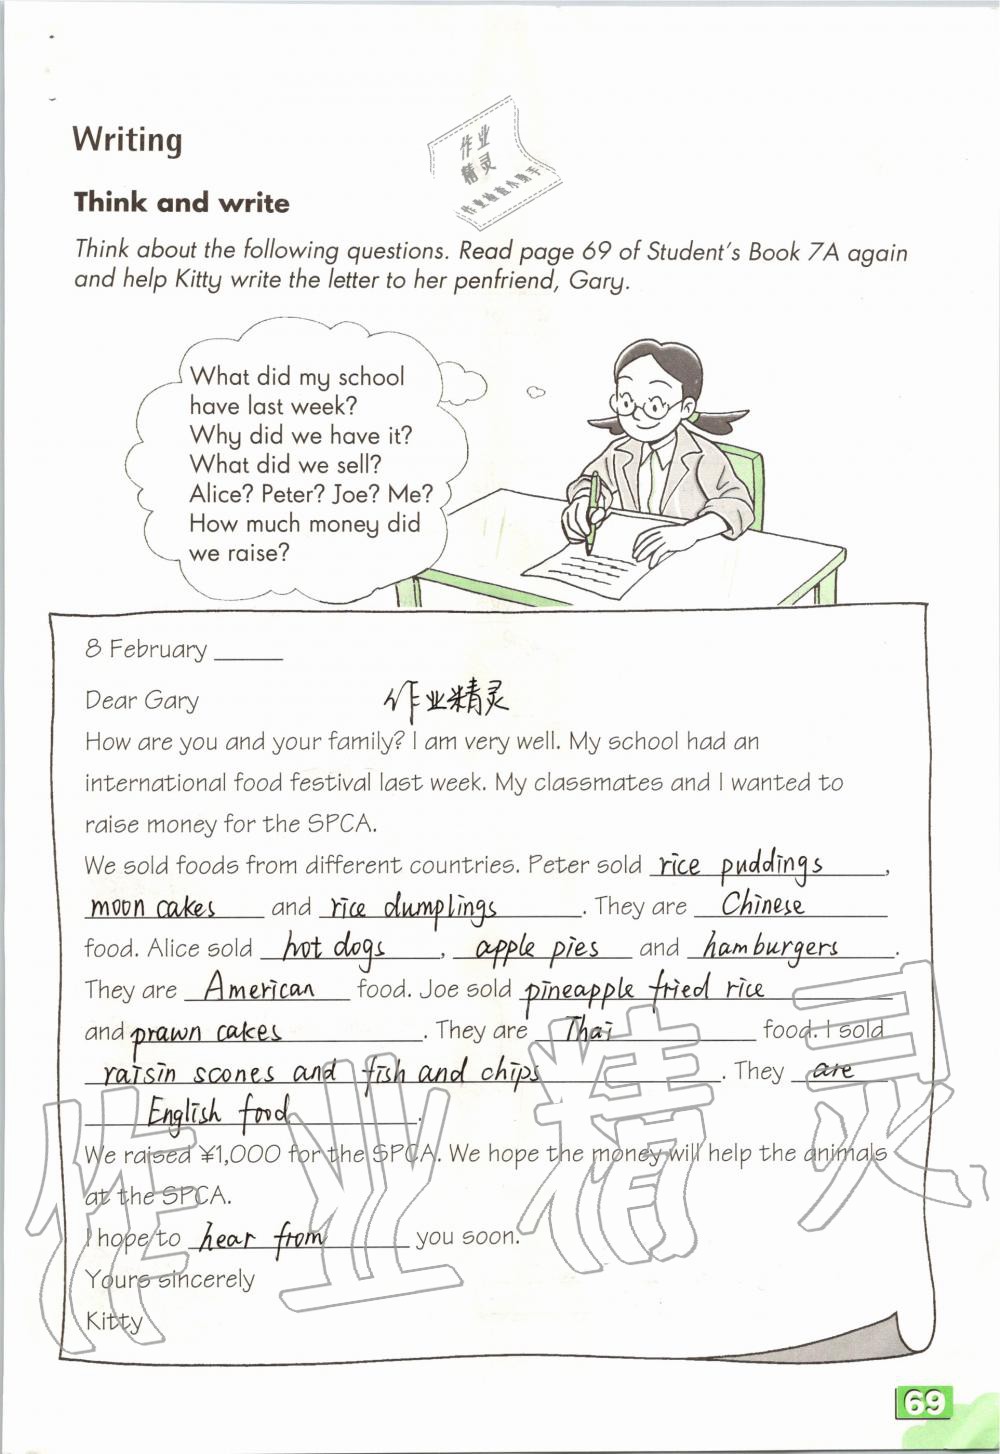 Writing
作业
精灵
作业检查小助手
Think and write
Think about the following questions. Read page 69 of Student's Book 7A again
and help Kitty write the letter to her penfriend, Gary.
What did my school
have last week?
Why did we have it?
What did we sell?
Alice? Peter? Joe? Me?
How much money did
we raise?
8 February ______
Dear Gary
作业精灵
How are you and your family? I am very well. My school had an
international food festival last week. My classmates and I wanted to
raise money for the SPCA.
We sold foods from different countries. Peter sold rice puddings,
moon cakes and rice dumplings. They are Chinese
food. Alice sold hot dogs, apple pies and hamburgers.
They are American food. Joe sold pineapple fried rice
and prawn cakes. They are Thai food. I sold
raisin scones and fish and chips. They are
English food.
We raised ¥1,000 for the SPCA. We hope the money will help the animals
at the SPCA.
I hope to hear from you soon.
Yours sincerely
Kitty
作业精灵
69